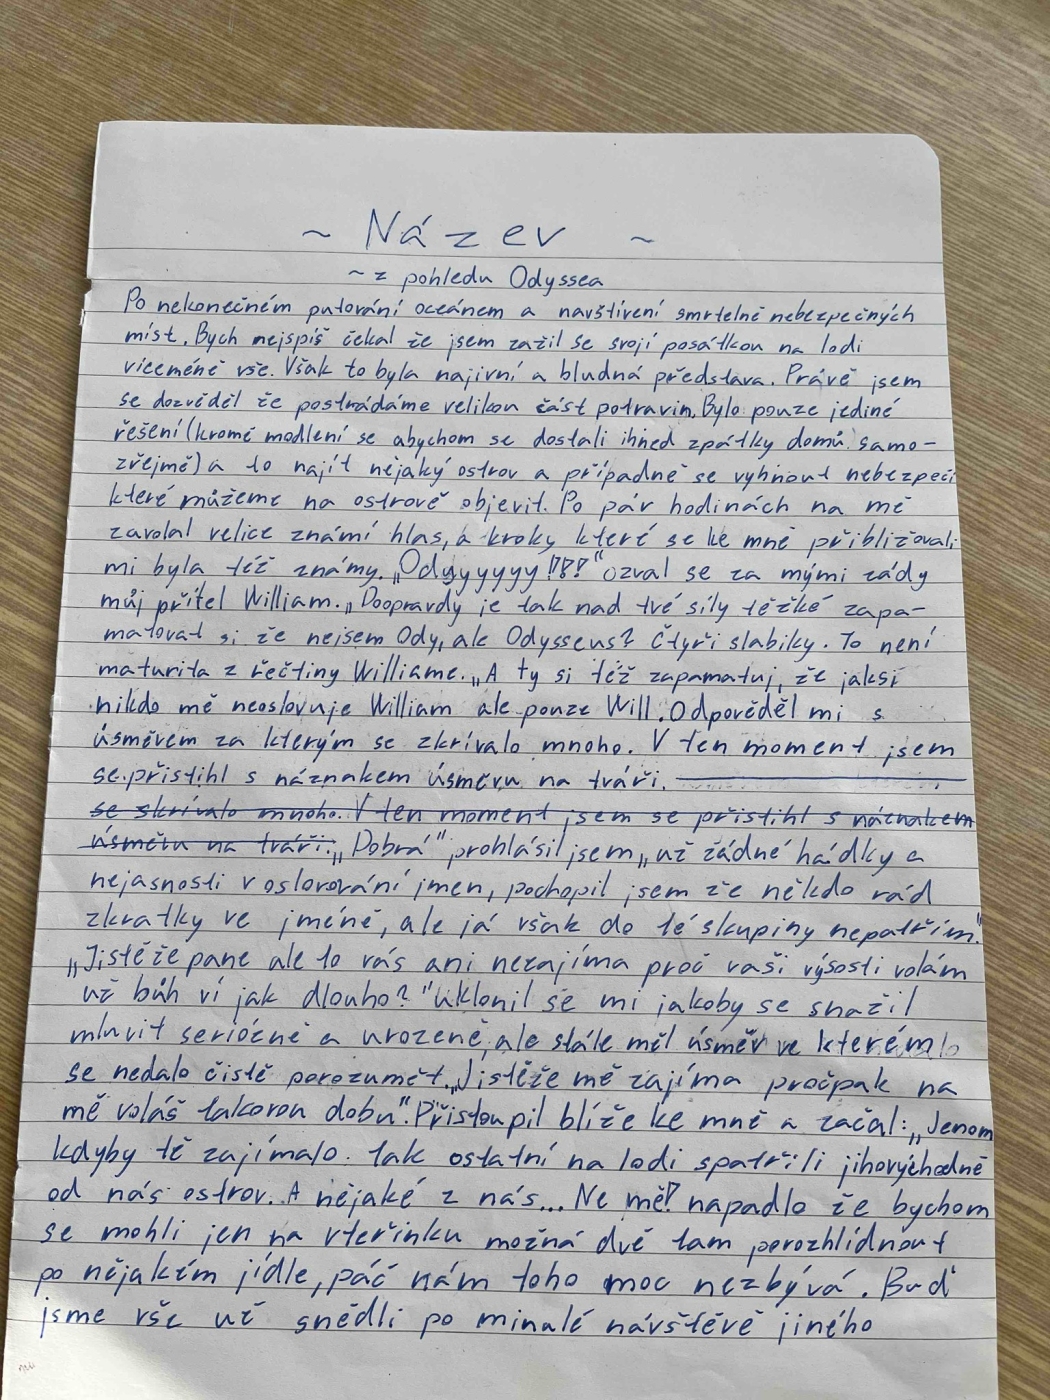 ~ Název ~
~ z pohledu Odyssea
Po nekonečném putování oceánem a navštívení smrtelně nebezpečných
míst. Bych nejspíš čekal že jsem zažil se svojí posátkou na lodi
víceméně vše. Však to byla najivní a bludná představa. Právě jsem
se dozvěděl že postrádáme velikou část potravin. Bylo pouze jediné
řešení (kromě modlení se abychom se dostali ihned zpátky domů samo-
zřejmě) a to najít nějaký ostrov a případně se vyhnout nebezpečí
které můžeme na ostrově objevit. Po pár hodinách na mě
zavolal velice známí hlas, a kroky které se ke mně přibližovali
mi byla též známy. „Odyyyyyy!!!" ozval se za mými zády
můj přítel William. „Doopravdy je tak nad tvé síly těžké zapa-
matovat si že nejsem Ody, ale Odysseus? Čtyři slabiky. To není
maturita z řečtiny Williame. „A ty si též zapamatuj, že jaksi
nikdo mě neoslovuje William ale pouze Will. Odpověděl mi s
úsměvem za kterým se zkrívalo mnoho. V ten moment jsem
se přistihl s náznakem úsměvu na tváři.
se skrívalo mnoho. V ten moment jsem se přistihl s náznakem
úsměvu na tváři. „Dobrá" prohlásil jsem „už žádné hádky a
nejasnosti v oslovování jmen, pochopil jsem že někdo rád
zkratky ve jméně, ale já však do té skupiny nepatřím."
„Jistěže pane ale to vás ani nezajíma proč vaši výsosti volám
už bůh ví jak dlouho?" Uklonil se mi jakoby se snažil
mluvit seriózně a urozeně, ale stále měl úsměv ve kterém
se nedalo čistě porozumět. „Jistěže mě zajíma pročpak na
mě voláš takovou dobu". Přistoupil blíže ke mně a začal: „Jenom
kdyby tě zajímalo. tak ostatní na lodi spatřili jihovýchodně
od nás ostrov. A nějaké z nás... Ne mě! napadlo že bychom
se mohli jen na vteřinku možná dvě tam porozhlídnout
po nějakém jídle, páč nám toho moc nezbývá. Buď
jsme vše už snědli po minalé návštěvě jiného